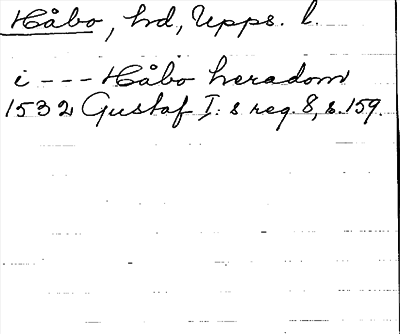 Håbo, hd, Upps. l.
i - - - Håbo heradom
1532 Gustaf I: s reg. 8, s. 159.